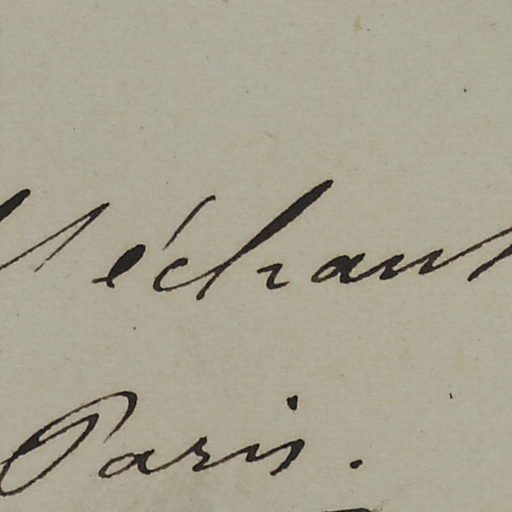 Méchant
Paris.